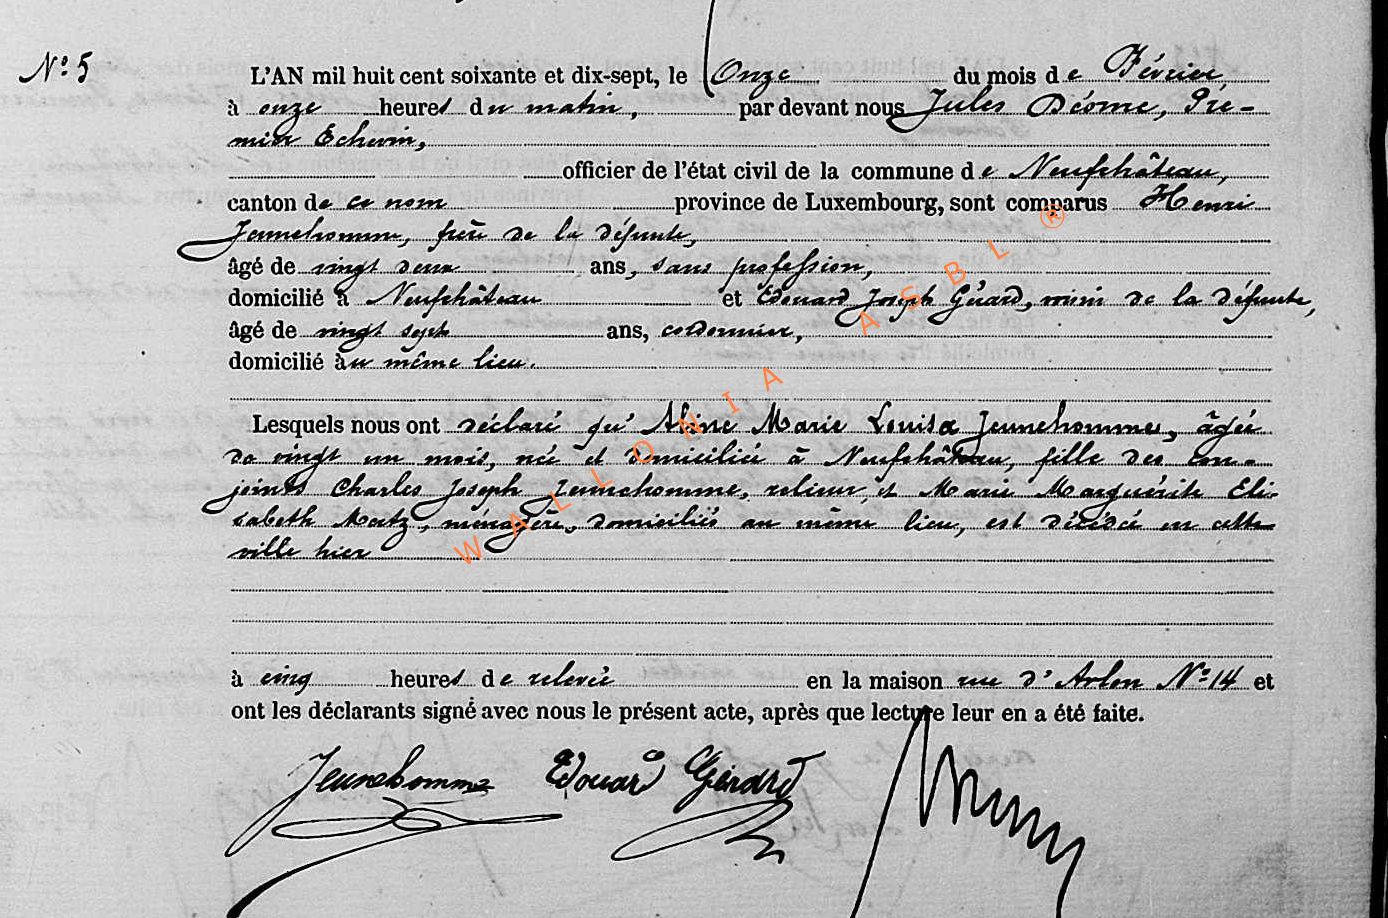 N° 5
L'AN mil huit cent soixante et dix-sept, le Onze du mois de Février,
à onze heures du matin, par devant nous Jules Déome, Pre-
mier Echevin,
officier de l'état civil de la commune de Neufchâteau,
canton de ce nom province de Luxembourg, sont comparus Henri
Jeunehomme, frère de la défunte,
âgé de vingt deux ans, sans profession,
domicilié à Neufchâteau et Edouard Joseph Gérard, voisin de la défunte,
âgé de vingt sept ans, cordonnier,
domicilié au même lieu.
Lesquels nous ont déclaré qu' Aline Marie Louise Jeunehomme, âgée
de vingt un mois, née et domiciliée à Neufchâteau, fille des con-
joints Charles Joseph Jeunehomme, relieur et Marie Marguérite Eli-
sabeth Motz, ménagère, domiciliés au même lieu, est décédée en cette
ville hier
à cinq heures de relevée en la maison rue d'Arlon N° 14 et
ont les déclarants signé avec nous le présent acte, après que lecture leur en a été faite.
Jeunehomme Edouard Gérard
WALLONIA ASBL ®